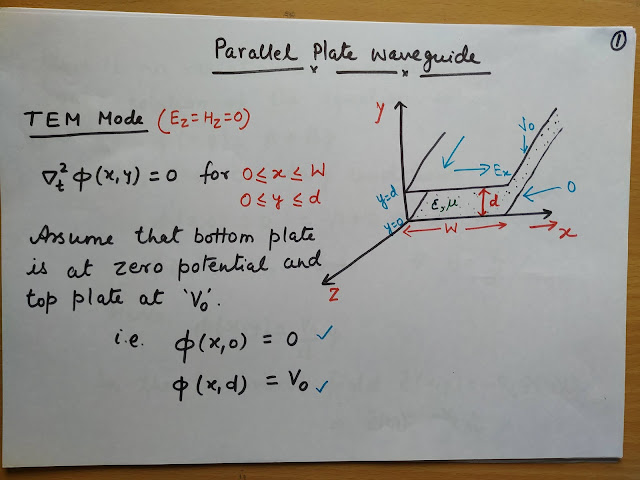 ①
Parallel Plate Waveguide
TEM Mode (Ez=Hz=0)
∇t² φ(x,y) = 0 for 0≤x≤W
0≤y≤d
Assume that bottom plate
is at zero potential and
top plate at 'V0'.
i.e. φ(x,0) = 0 ✓
φ(x,d) = V0 ✓
y
V0
Ex
0
y=d
ε,μ
d
y=0
W
x
z